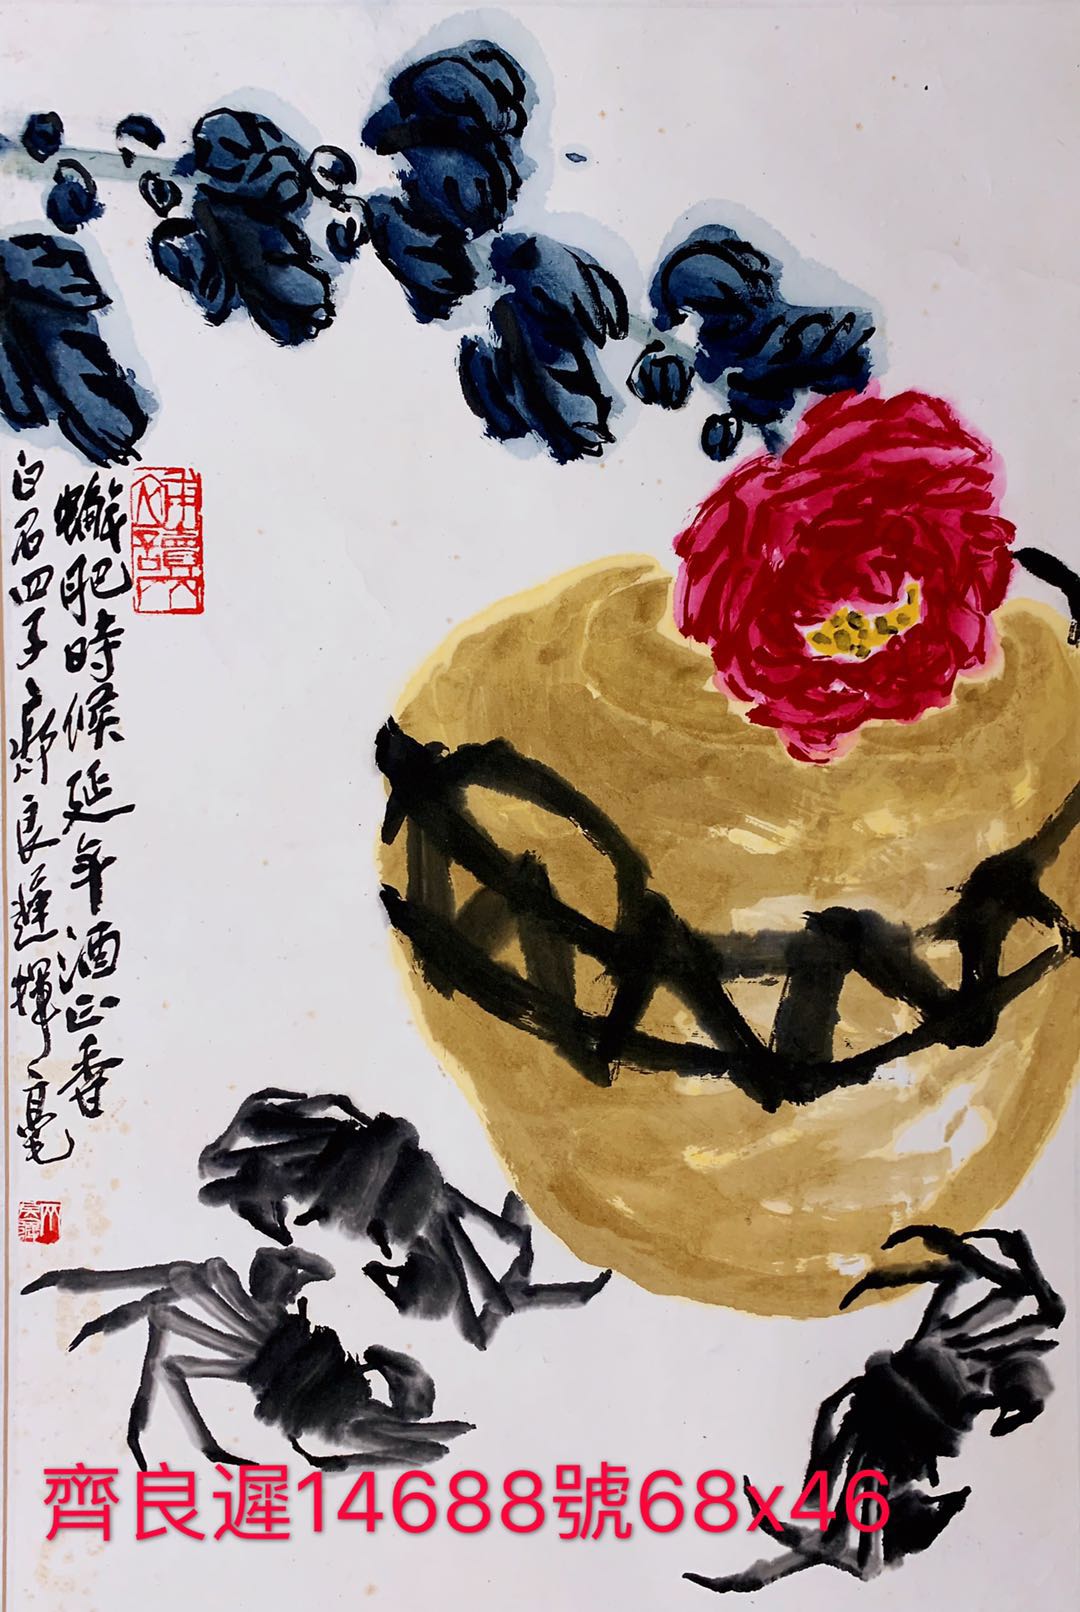 蠏肥時候延年酒正香
白石四子齊良遲揮毫
齊良遲14688號68x46